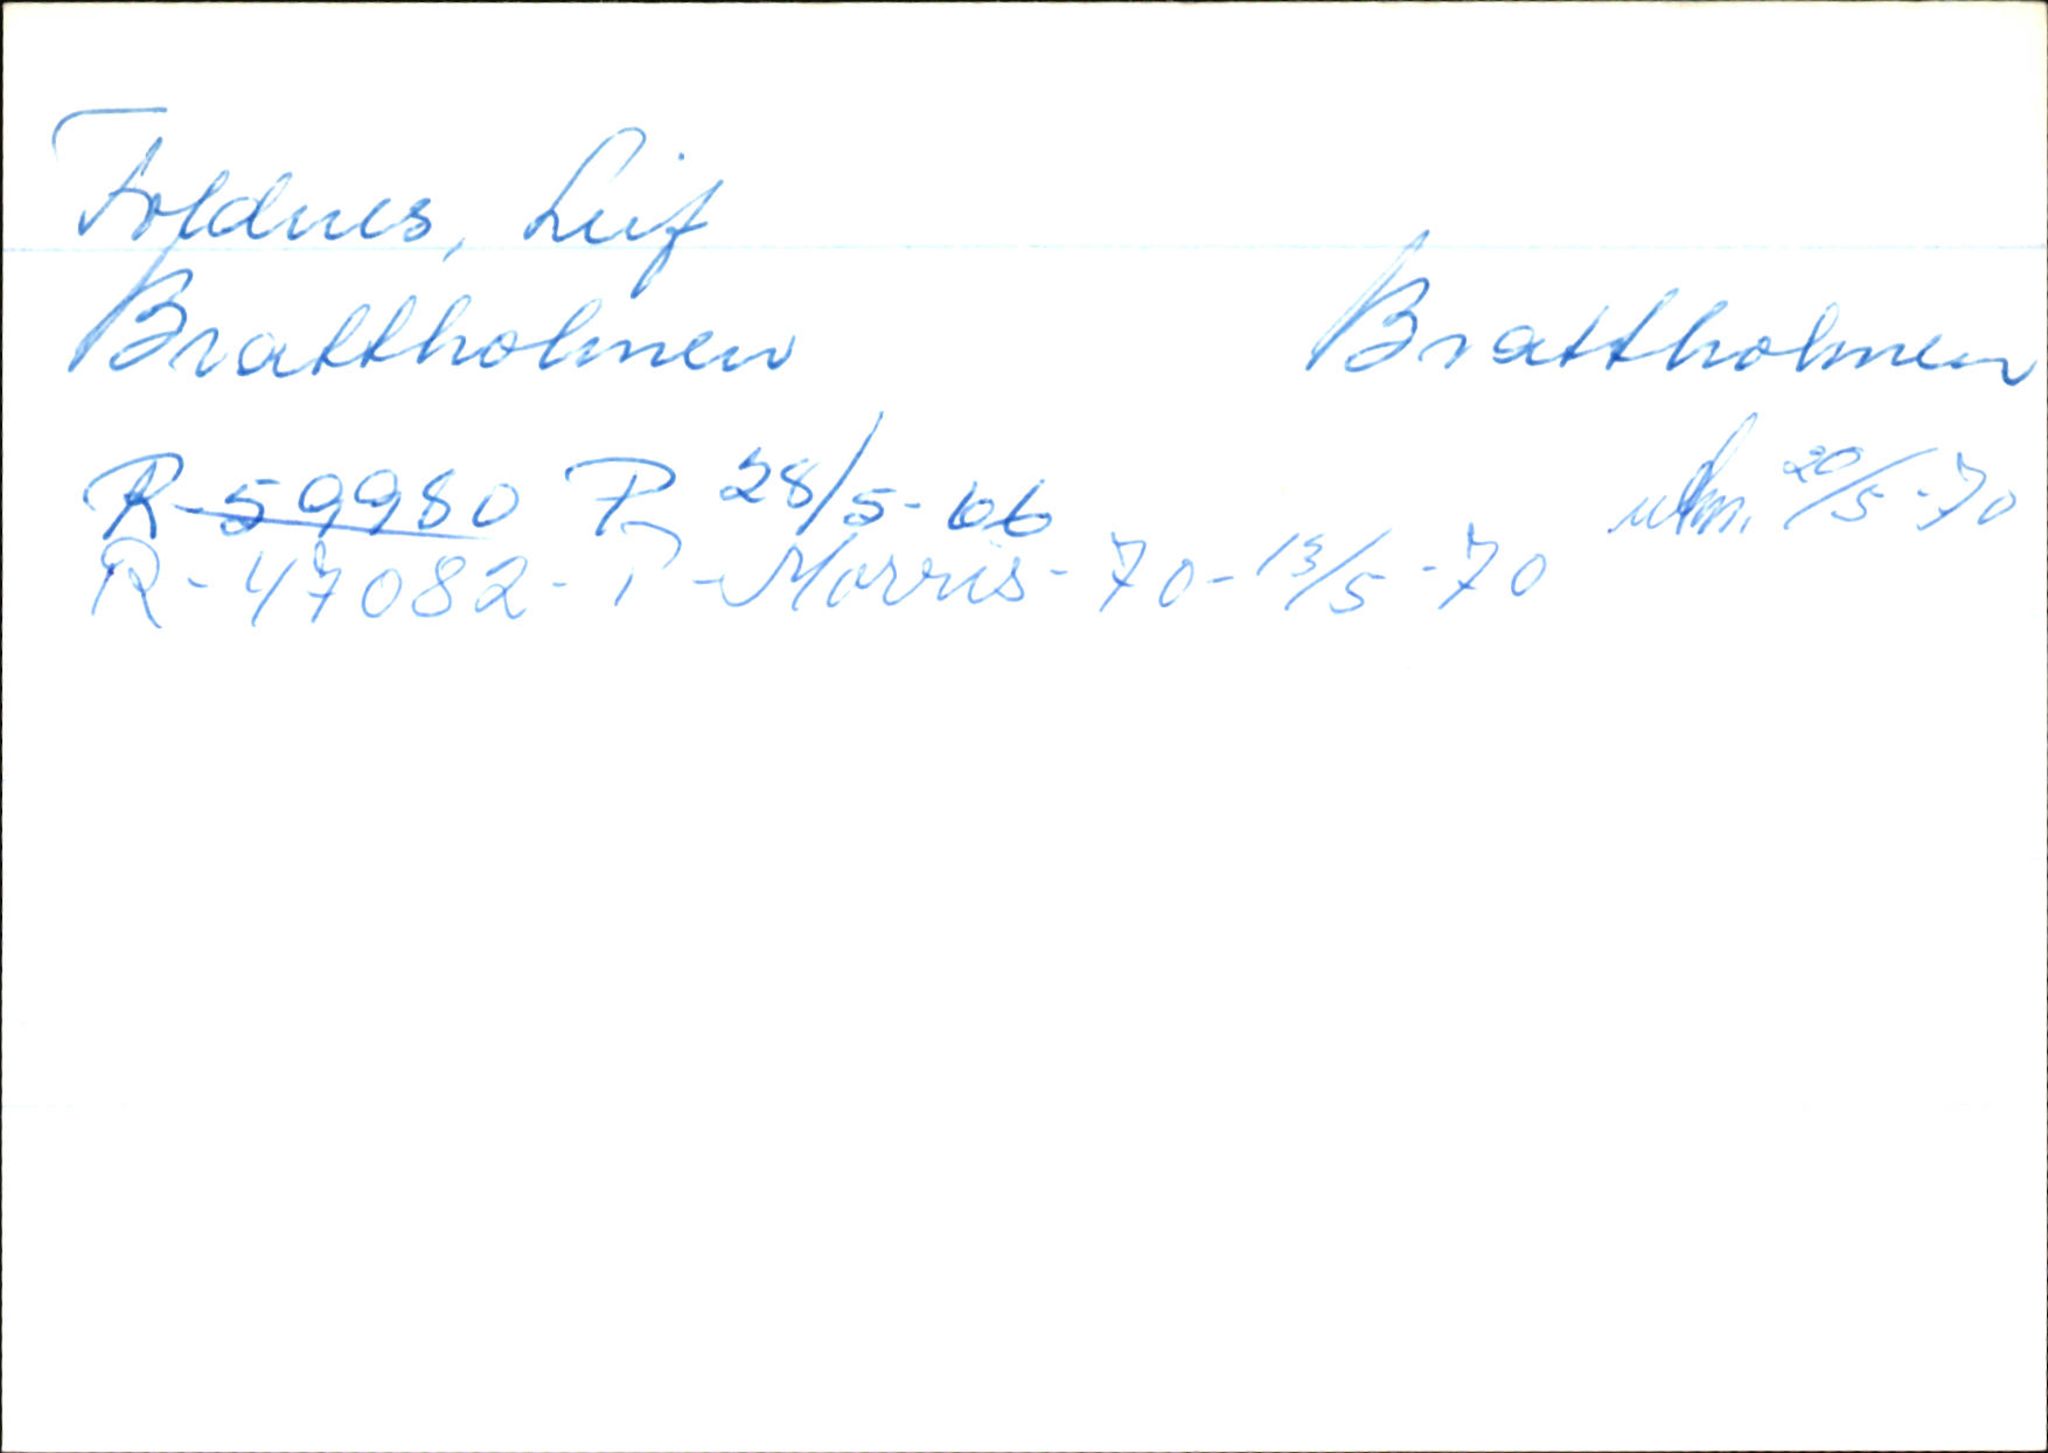 Foldnes, Leif
Brattholmen Brattholmen
R-59980 P 28/5-66 utm. 20/5-70
R-47082-P-Morris-70-13/5-70